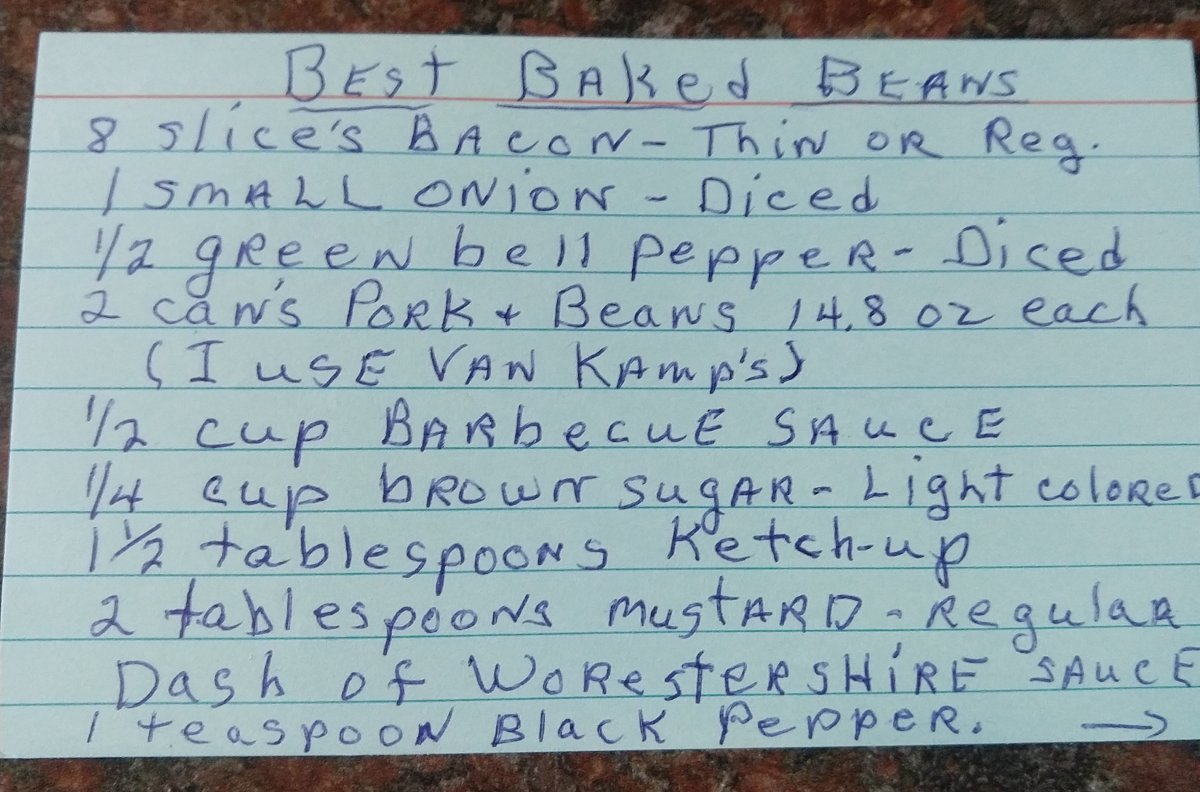 BEST BAKED BEANS
8 slice's BACON - Thin OR Reg.
1 SMALL ONION - Diced
1/2 gREEN bell pEPPER - Diced
2 can's PORK + Beans 14.8 oz each
(I USE VAN KAmp's)
1/2 cup BARbecuE SAucE
1/4 cup bROWN sugAR - Light coloRED
1 1/2 tablespoons Ketch-up
2 tablespoons mustARD - Regular
Dash of WORestERSHIRE SAucE
1 teaspoon Black PEPPER. →